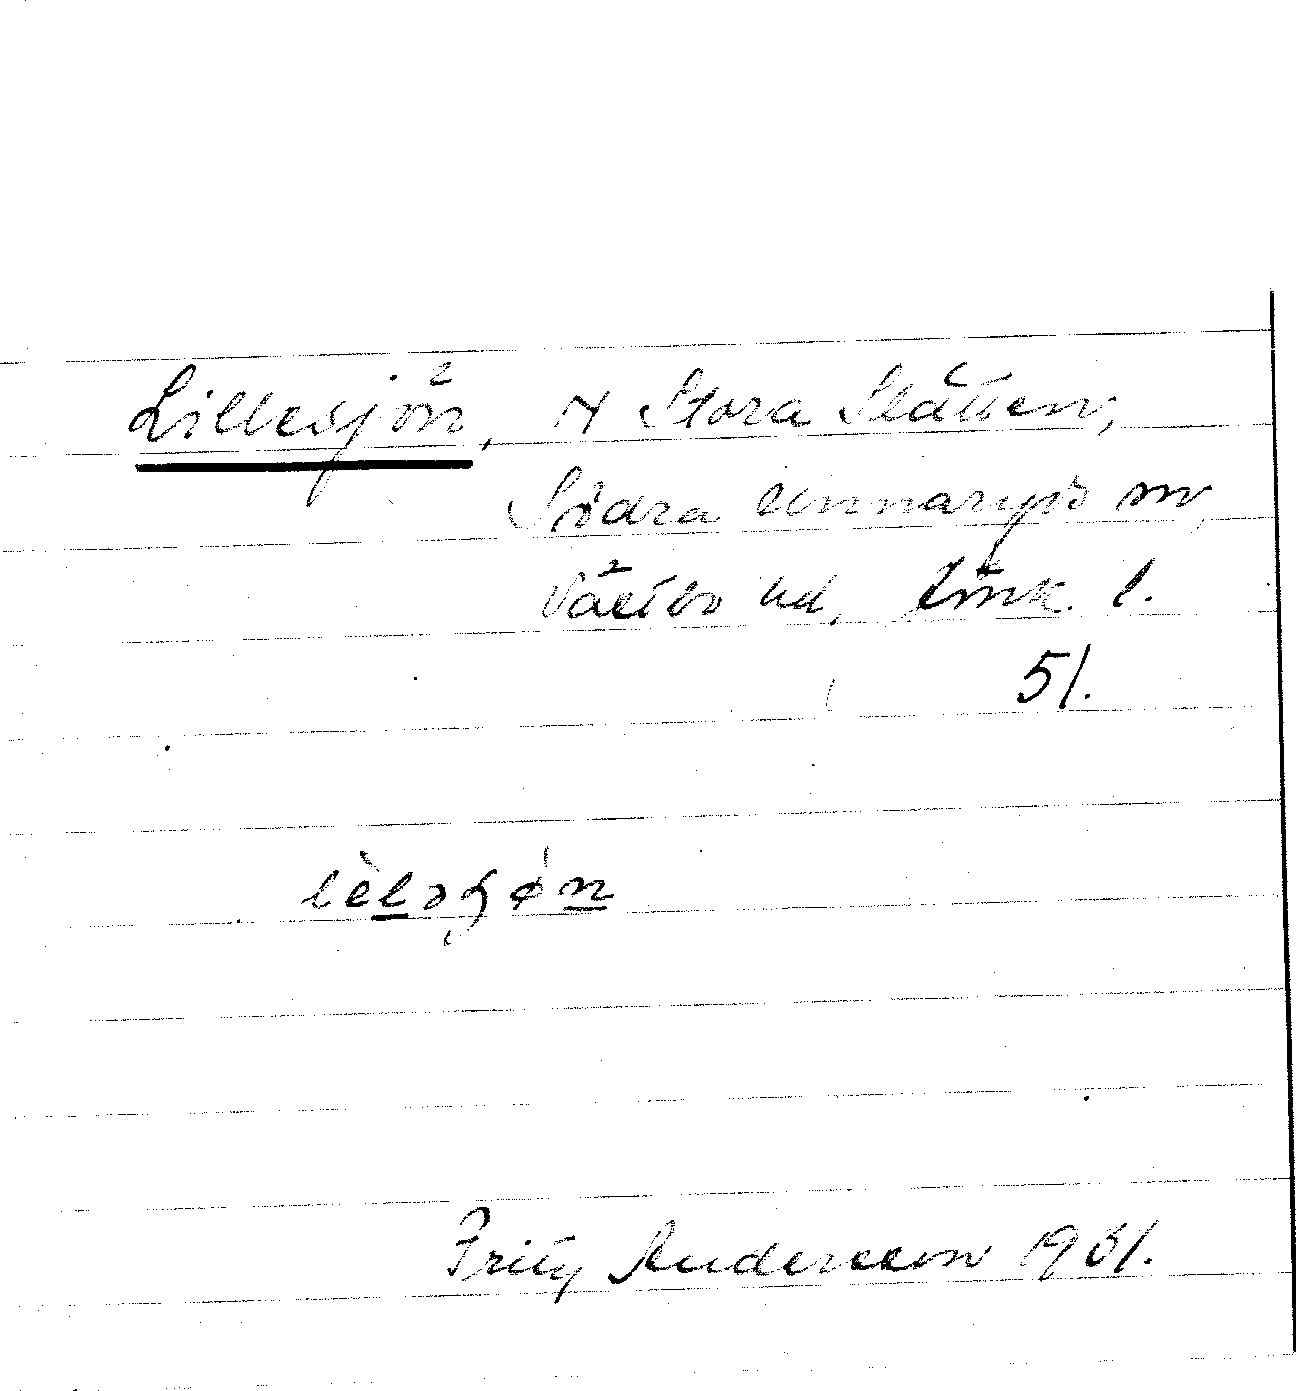 Lillesjön, N Stora Slätten,
Södra Unnaryds sn,
Västbo hd, Jönk. l.
51.
lèləɧøn
Fritz Andersson 1931.